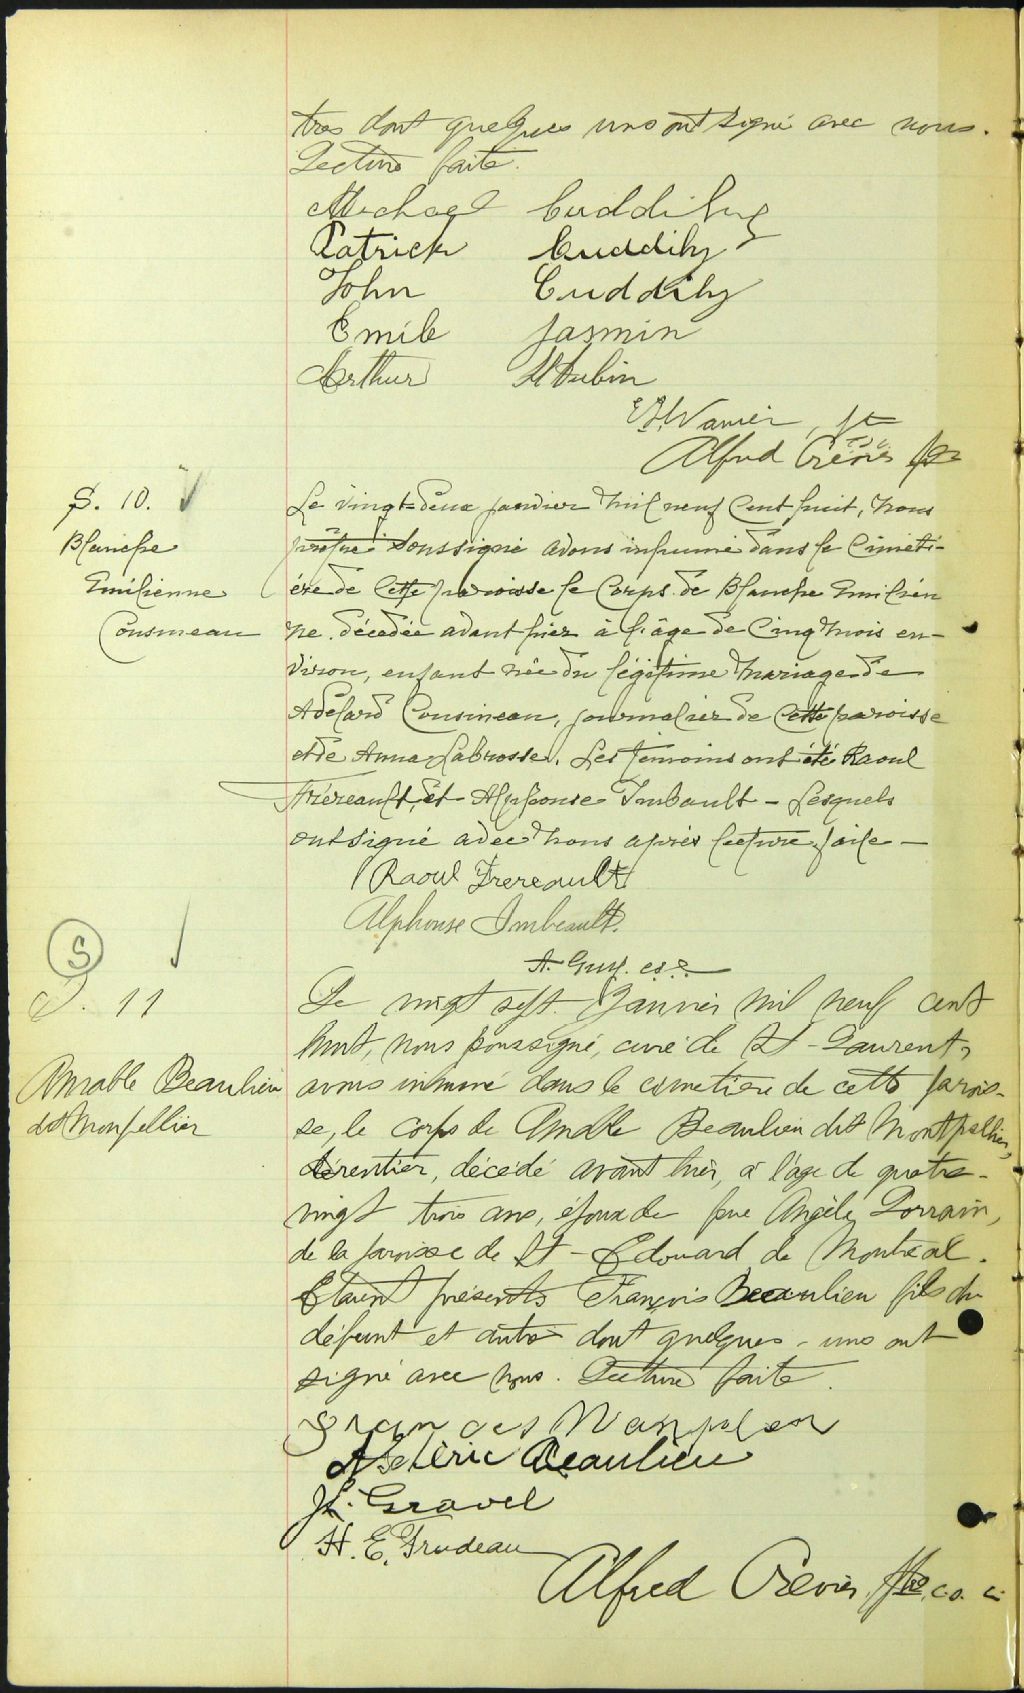 tres dont quelques uns ont signé avec nous.
Lecture faite.
Michael Cuddihy
Patrick Cuddihy
John Cuddihy
Emile Jasmin
Arthur St Aubin
Vanier, 
Alfred Crevier ptre
S. 10.
Blanche
Emilienne
Cousineau
Le vingt-deux janvier mil neuf cent huit, nous
prêtre soussigné avons inhumé dans le cimeti-
ère de cette paroisse le corps de Blanche Emilien
ne décédée avant hier à l'âge de cinq mois en-
viron, enfant née du légitime mariage de
Adélard Cousineau, journalier de cette paroisse
et de Anna Labrosse. Les témoins ont été Raoul
Frereault, et Alphonse Imbault - lesquels
ont signé avec nous après lecture faite -
Raoul Frereault
Alphonse Imbeault.
A. Guy.
S
S. 11
Amable Beaulieu
dit Monpellier
Le vingt sept Janvier mil neuf cent
huit, nous soussigné, curé de St-Laurent,
avons inhumé dans le cimetière de cette parois-
se, le corps de Amable Beaulieu dit Montpellier,
rentier, décédé avant hier, à l'âge de quatre-
vingt trois ans, époux de feue Angèle Lorrain,
de la paroisse de St-Edouard de Montréal.
Etaient présents François Beaulieu fils du
défunt et autres dont quelques-uns ont
signé avec nous. Lecture faite.
Beaulieu
J.L. Gravel
H. E. Trudeau
Alfred Crevier, ptre, c.